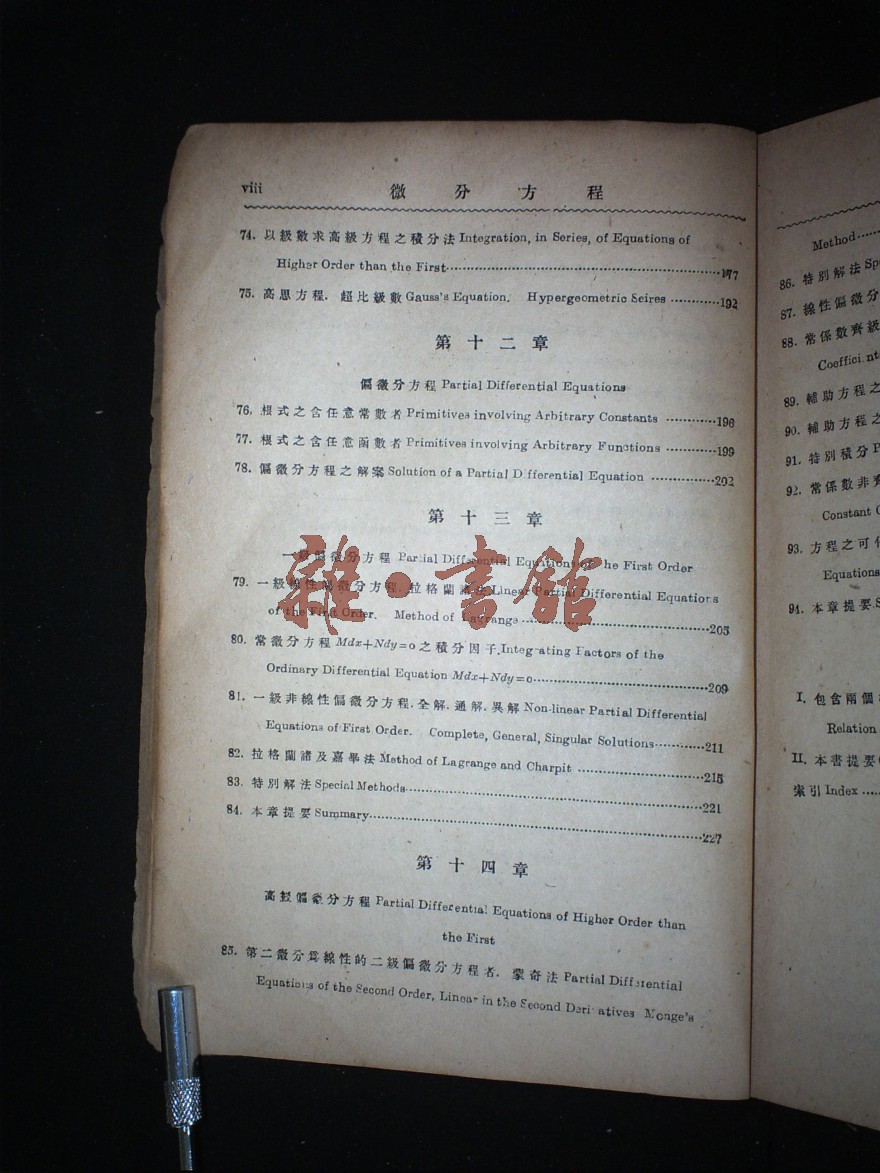 viii 微分方程
74. 以級數求高級方程之積分法 Integration, in Series, of Equations of
Higher Order than the First……177
75. 高思方程．超比級數 Gauss's Equation. Hypergeometric Seires……192
第十二章
偏微分方程 Partial Differential Equations
76. 根式之含任意常數者 Primitives involving Arbitrary Constants……196
77. 根式之含任意函數者 Primitives involving Arbitrary Functions……199
78. 偏微分方程之解案 Solution of a Partial Differential Equation……202
第十三章
一級偏微分方程 Partial Differential Equations of the First Order
79. 一級線性偏微分方程．拉格蘭諸法 Linear Partial Differential Equations
of the First Order. Method of Lagrange……205
80. 常微分方程 Mdx+Ndy=o 之積分因子．Integrating Factors of the
Ordinary Differential Equation Mdx+Ndy=o……209
81. 一級非線性偏微分方程．全解．通解．異解 Non-linear Partial Differential
Equations of First Order. Complete, General, Singular Solutions……211
82. 拉格蘭諸及嘉畢法 Method of Lagrange and Charpit……215
83. 特別解法 Special Methods……221
84. 本章提要 Summary……227
第十四章
高級偏微分方程 Partial Differential Equations of Higher Order than
the First
85. 第二微分爲線性的二級偏微分方程者．蒙奇法 Partial Differential
Equations of the Second Order, Linear in the Second Derivatives Monge's
雜·書館
Method……
86. 特別解法 Sp
87. 線性偏微分
88. 常係數齊級
Coefficient
89. 輔助方程之
90. 輔助方程之
91. 特別積分 P
92. 常係數非齊
Constant C
93. 方程之可
Equations
94. 本章提要 S
I. 包含兩個
Relation
II. 本書提要
索引 Index……